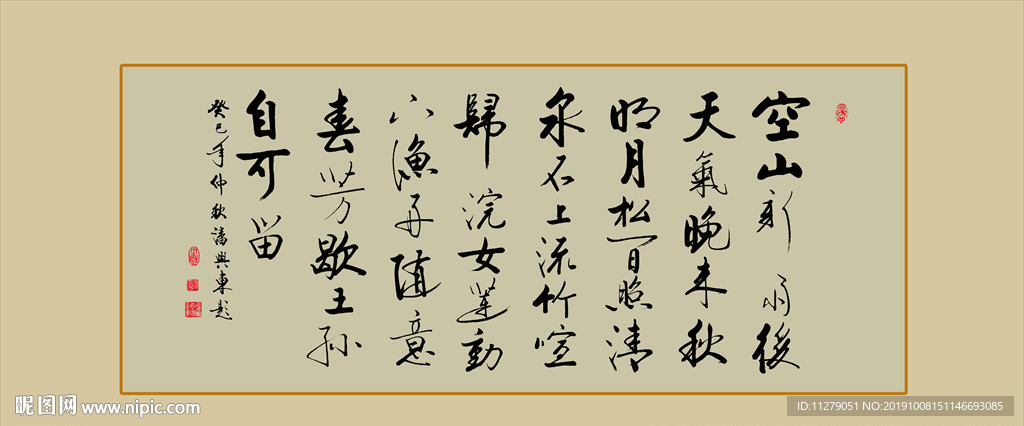 空山新雨後
天氣晚来秋
明月松間照清
泉石上流竹喧
歸浣女蓮動
下漁舟随意
春芳歇王孫
自可留
癸巳年仲秋潘興東題
昵图网 www.nipic.com
ID:11279051 NO:20191008151146693085